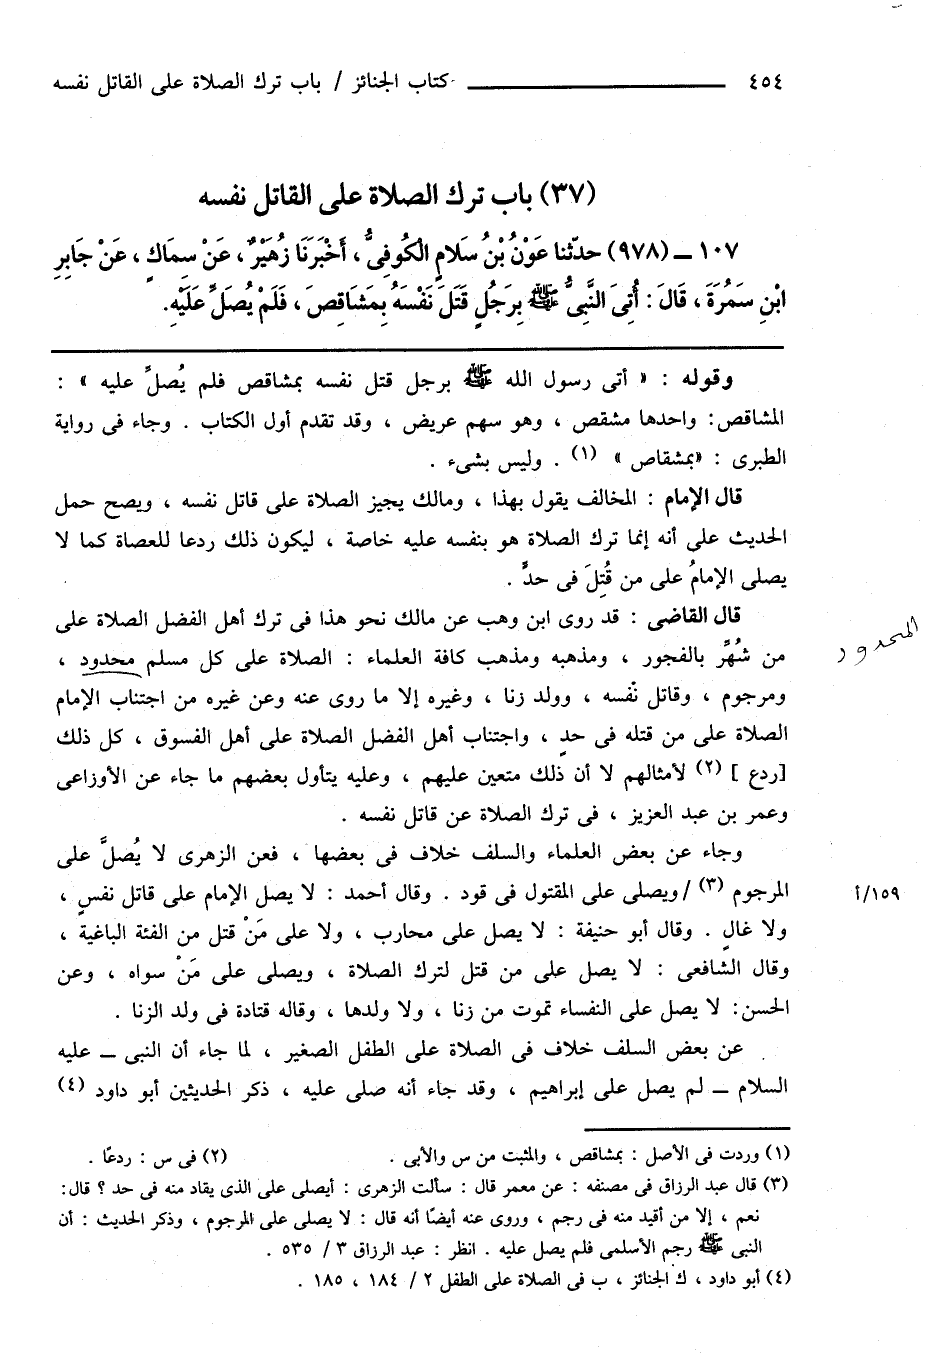 ٤٥٤ ــــــــــــ كتاب الجنائز / باب ترك الصلاة على القاتل نفسه
(٣٧) باب ترك الصلاة على القاتل نفسه
١٠٧ ــ (٩٧٨) حدّثنا عَوْنُ بْنُ سَلامٍ الْكُوفِىُّ ، أَخْبَرَنَا زُهَيْرٌ ، عَنْ سِمَاكٍ ، عَنْ جَابِرِ
ابْنِ سَمُرَةَ ، قَالَ : أُتِىَ النَّبِىُّ ﷺ بِرَجُلٍ قَتَلَ نَفْسَهُ بِمَشَاقِصَ ، فَلَمْ يُصَلِّ عَلَيْهِ.
وقوله : « أتى رسول الله ﷺ برجل قتل نفسه بمشاقص فلم يُصلِّ عليه » :
المشاقص: واحدها مشقص ، وهو سهم عريض ، وقد تقدم أول الكتاب . وجاء فى رواية
الطبرى : «بمشقاص » (١) . وليس بشىء .
قال الإمام : المخالف يقول بهذا ، ومالك يجيز الصلاة على قاتل نفسه ، ويصح حمل
الحديث على أنه إنما ترك الصلاة هو بنفسه عليه خاصة ، ليكون ذلك ردعا للعصاة كما لا
يصلى الإمامُ على من قُتِلَ فى حدٍّ .
قال القاضى : قد روى ابن وهب عن مالك نحو هذا فى ترك أهل الفضل الصلاة على
من شُهِّر بالفجور ، ومذهبه ومذهب كافة العلماء : الصلاة على كل مسلم محدود ،
المحدود
ومرجوم ، وقاتل نفْسه ، وولد زنا ، وغيره إلا ما روى عنه وعن غيره من اجتناب الإمام
الصلاة على من قتله فى حدٍ ، واجتناب أهل الفضل الصلاة على أهل الفسوق ، كل ذلك
[ردع ] (٢) لأمثالهم لا أن ذلك متعين عليهم ، وعليه يتأول بعضهم ما جاء عن الأوزاعى
وعمر بن عبد العزيز ، فى ترك الصلاة عن قاتل نفسه .
وجاء عن بعض العلماء والسلف خلاف فى بعضها ، فعن الزهرى لا يُصلَّ على
المرجوم (٣) /ويصلى على المقتول فى قود . وقال أحمد : لا يصل الإمام على قاتل نفسٍ ،
١٥٩/أ
ولا غالٍ . وقال أبو حنيفة : لا يصل على محارب ، ولا على مَنْ قتل من الفئة الباغية ،
وقال الشافعى : لا يصل على من قتل لترك الصلاة ، ويصلى على مَنْ سواه ، وعن
الحسن: لا يصل على النفساء تموت من زنا ، ولا ولدها ، وقاله قتادة فى ولد الزنا .
عن بعض السلف خلاف فى الصلاة على الطفل الصغير ، لما جاء أن النبى ــ عليه
السلام ــ لم يصل على إبراهيم ، وقد جاء أنه صلى عليه ، ذكر الحديثين أبو داود (٤)
(١) وردت فى الأصل : بمشاقص ، والمثبت من س والأبى . (٢) فى س : ردعًا .
(٣) قال عبد الرزاق فى مصنفه : عن معمر قال : سألت الزهرى : أيصلى على الذى يقاد منه فى حد ؟ قال:
نعم ، إلا من أقيد منه فى رجم ، وروى عنه أيضًا أنه قال : لا يصلى على المرجوم ، وذكر الحديث : أن
النبى ﷺ رجم الأسلمى فلم يصل عليه . انظر : عبد الرزاق ٣ / ٥٣٥ .
(٤) أبو داود ، ك الجنائز ، ب فى الصلاة على الطفل ٢ / ١٨٤ ، ١٨٥ .